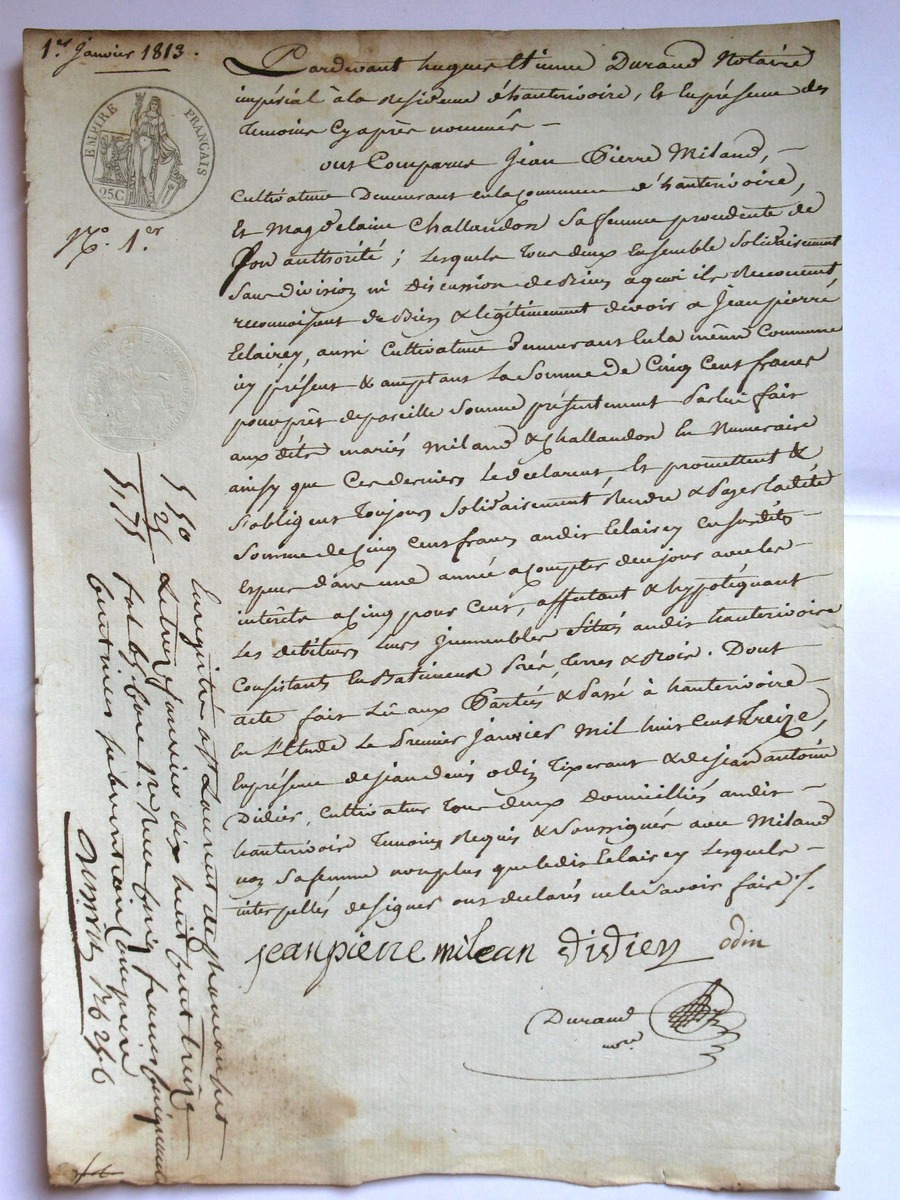 1.er Janvier 1813.
EMPIRE FRANÇAIS
25 C.
N.o 1.er
Pardevant hugues Etienne Durand Notaire
impérial à la Residence d'hauterivoire, Et En présence des
temoins Cy après nommés —
ont Comparus Jean Pierre Miland, —
Cultivateur Demeurant en la Commune d'hauterivoire,
Et Magdelaine Challandon Sa femme procedente de
Son authorité ; Lesquels tous deux Ensemble Solidairement
Sans division ni Discussion de Biens a quoi ils Renoncent
reconnoissent de Bien & légitimement devoir a Jean pierre
Eclairey, aussi Cultivateur Demeurant En la même Commune
icy présent & acceptant La Somme de Cinq Cent francs
pour prêt de pareille Somme présentement par lui fait
aux dits mariés Miland & Challandon En Numeraire
ainsy que Ces derniers Le déclarent, Et promettent &
S'obligent Toujours Solidairement, Rendre & Payer la dite
Somme de Cinq Cent francs audit Eclairey En Susdites —
Espèces dans une année a Compter de ce jour avec les —
intérêts a Cinq pour Cent, affectant & hypotéquant
Les débiteurs Leurs Immeubles Situés audit hauterivoire
Consistants En Batiments Prés, Terres & Bois. Dont
acte fait Lû aux Parties & Passé à hauterivoire —
En l'Etude Le Premier Janvier Mil huit Cent Treize,
En présence de Jean denis odin Tixerant & de Jean antoine
Didier, Cultivateur Tous deux Domiciliés audit —
hauterivoire Temoins Requis & Soussignés avec Miland
non Sa femme non plus que ledit Eclairey Lesquels —
interpellés de signer ont déclarés ne le Savoir faire /.
jean pierre milean didier odin
Durand
no.re
Enregistré a St Laurent de chamousset
Le trois Janvier dix huit Cent treize
fol. 69. Case 1.re Reçu cinq francs cinquante
Cent mes subvention Comprise
5 50